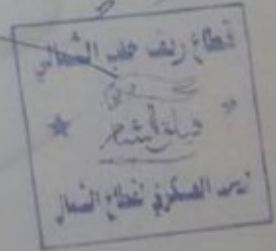 قطاع ريف حلب الشمالي
فيلق الشام
العسكري لقطاع الشمال